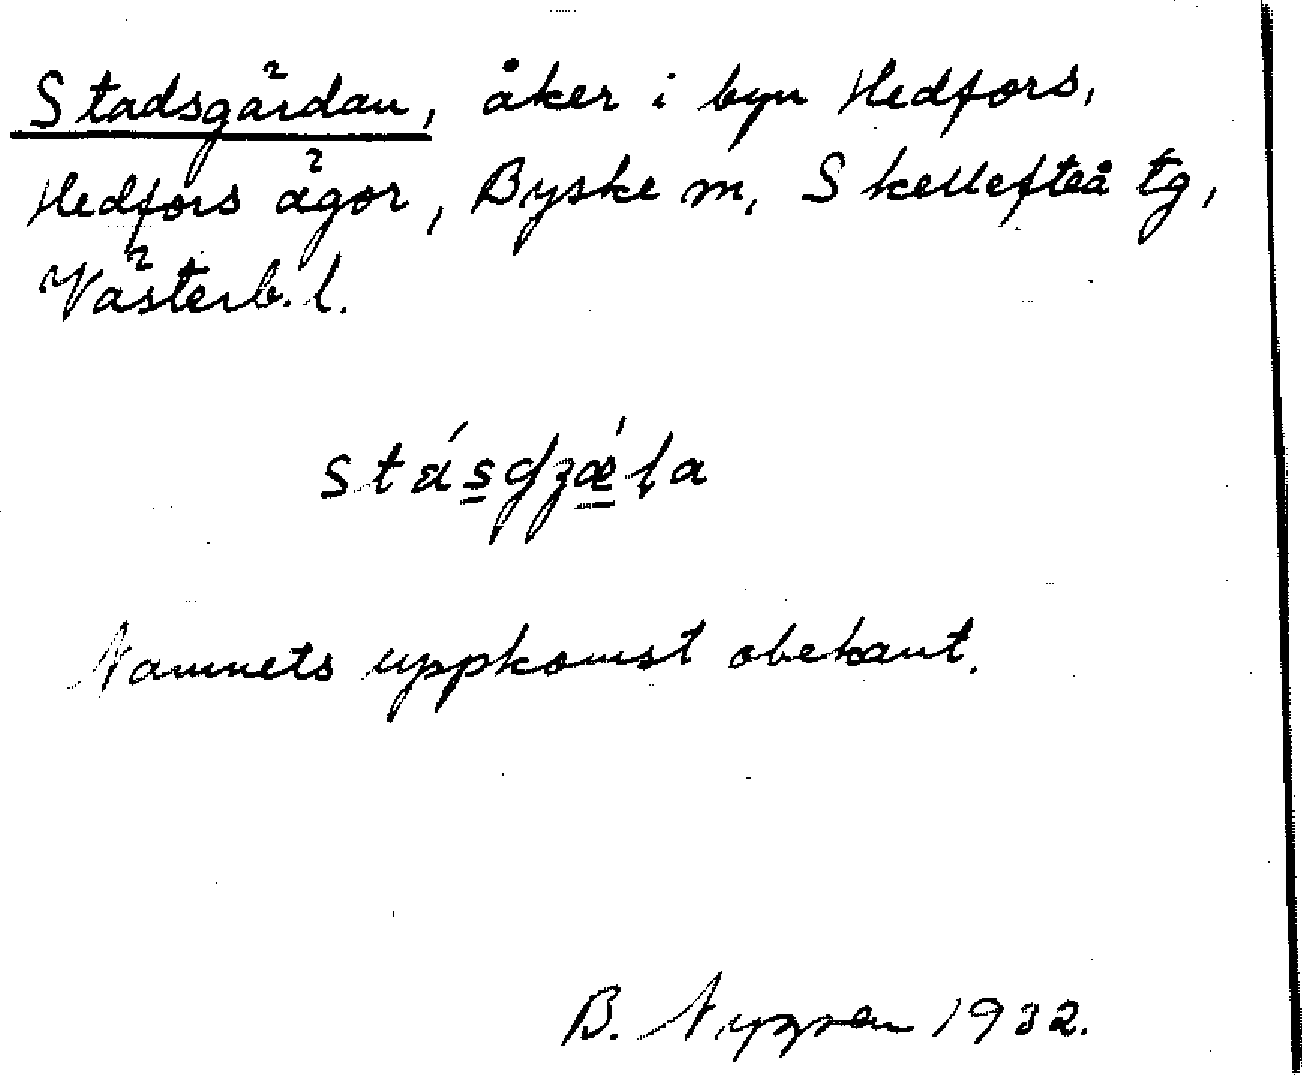 Stadsgärdan, åker i byn Hedfors,
Hedfors ägor, Byske m, Skellefteå tg,
Västerb. l.
Namnets uppkomst obekant.
B. 1932.